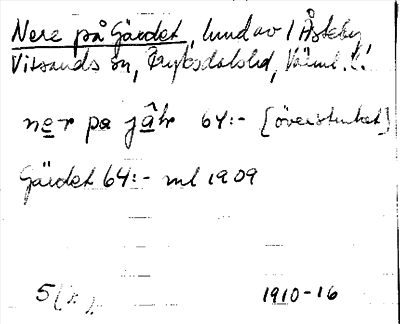 Nere på Gärdet, lund av 1 Åsteby
Vitsands sn, Fryksdals hd, Värml. l.
ner pa jâ̱hr 64:- [överstruket]
Gärdet 64:- ml 1909
1910-16